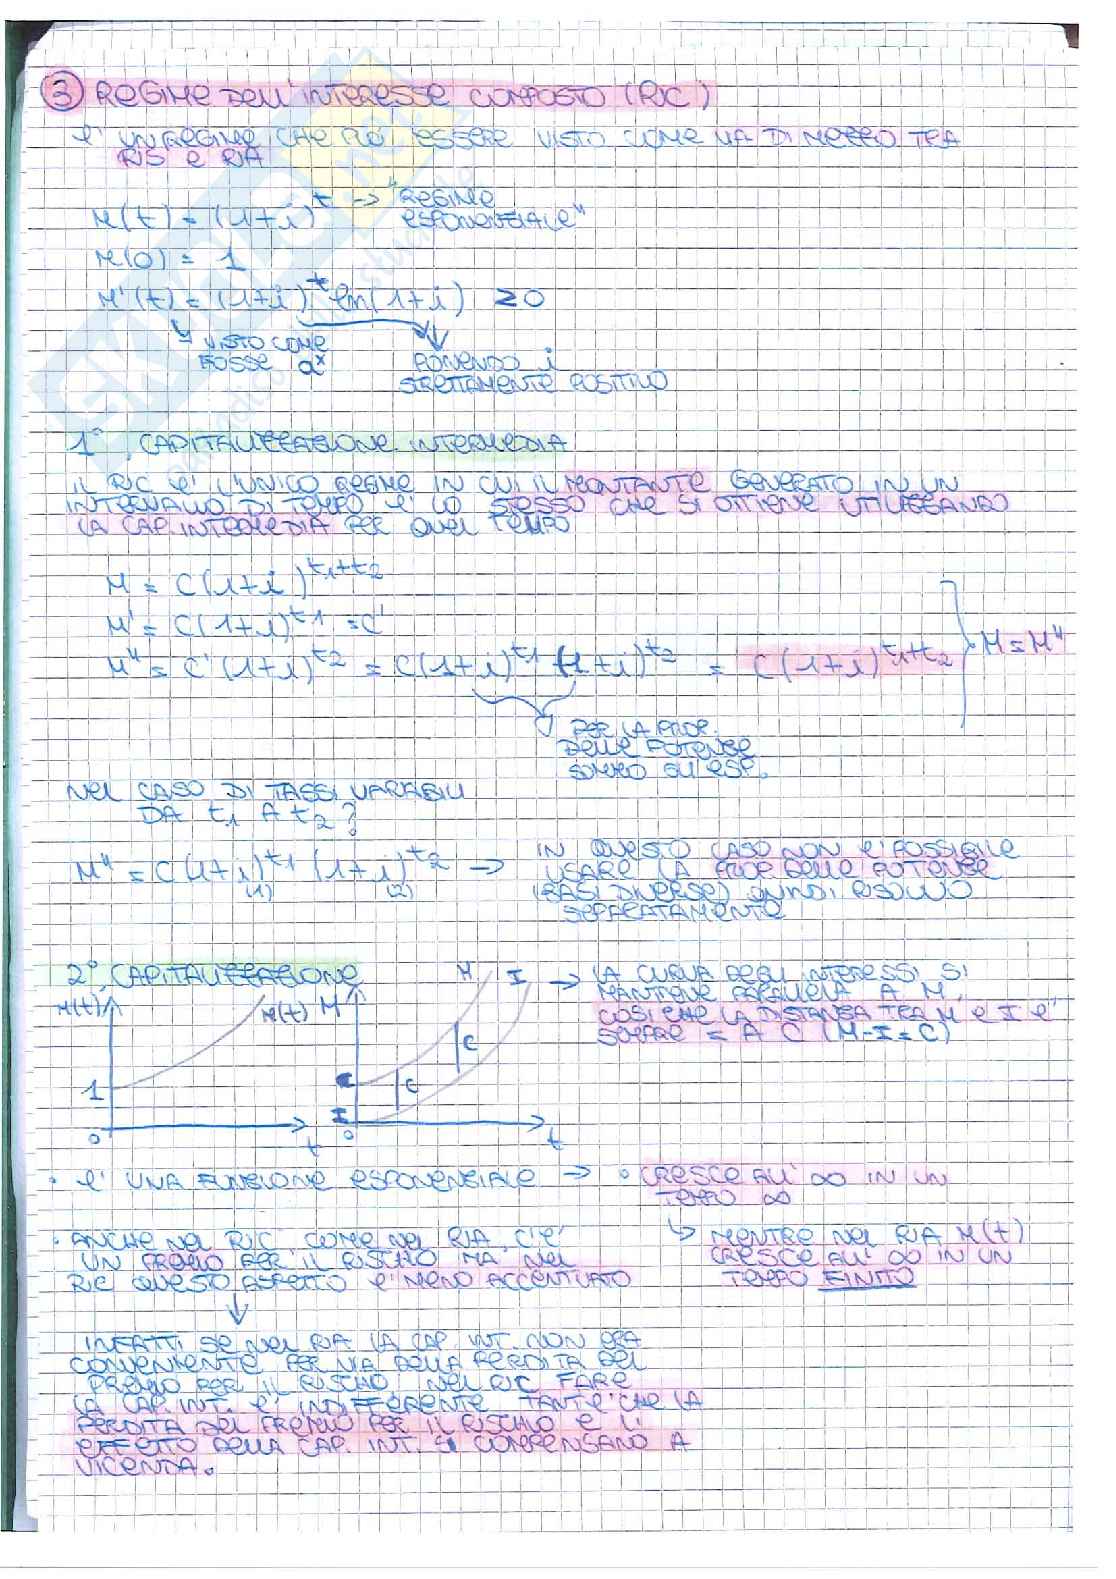 3 REGIME DELL'INTERESSE COMPOSTO (RIC)
E' UN REGIME CHE PUÒ ESSERE VISTO COME VIA DI MEZZO TRA
RIS E RIA
M(t) = (1+i)^t → "REGIME
ESPONENZIALE"
M(0) = 1
M'(t) = (1+i)^t ln(1+i) ≥0
VISTO COME
FOSSE a^x
PONENDO i
STRETTAMENTE POSITIVO
1° CAPITALIZZAZIONE INTERMEDIA
IL RIC E' L'UNICO REGIME IN CUI IL MONTANTE GENERATO IN UN
INTERVALLO DI TEMPO E' LO STESSO CHE SI OTTIENE UTILIZZANDO
LA CAP. INTERMEDIA PER QUEL TEMPO
M = C(1+i)^t1+t2
M' = C(1+i)^t1 = C'
M" = C'(1+i)^t2 = C(1+i)^t1 (1+i)^t2 = C(1+i)^t1+t2
M=M"
PER LA PROP.
DELLE POTENZE
SOMMO GLI ESP.
NEL CASO DI TASSI VARIABILI
DA t1 A t2?
M" = C(1+i(1))^t1 (1+i(2))^t2 → IN QUESTO CASO NON E' POSSIBILE
USARE LA PROP DELLE POTENZE
(BASI DIVERSE) QUINDI RISOLVO
SEPARATAMENTE
2° CAPITALIZZAZIONE
M(t)
M(t)
1
0
t
M
M
I
C
C
C
I
0
t
→ LA CURVA DEGLI INTERESSI SI
MANTIENE PARALLELA A M,
COSI CHE LA DISTANZA TRA M E I E'
SEMPRE = A C (M-I=C)
• E' UNA FUNZIONE ESPONENZIALE → • CRESCE ALL' ∞ IN UN
TEMPO ∞
↳ MENTRE NEL RIA M(t)
CRESCE ALL' ∞ IN UN
TEMPO FINITO
• ANCHE NEL RIC, COME NEL RIA, C'E'
UN PREMIO PER IL RISCHIO MA NEL
RIC QUESTO ASPETTO E' MENO ACCENTUATO
INFATTI SE NEL RIA LA CAP. INT. NON ERA
CONVENIENTE PER VIA DELLA PERDITA DEL
PREMIO PER IL RISCHIO, NEL RIC FARE
LA CAP. INT. E' INDIFFERENTE TANT'E' CHE LA
PERDITA DEL PREMIO PER IL RISCHIO E L'
EFFETTO DELLA CAP. INT. SI COMPENSANO A
VICENDA.